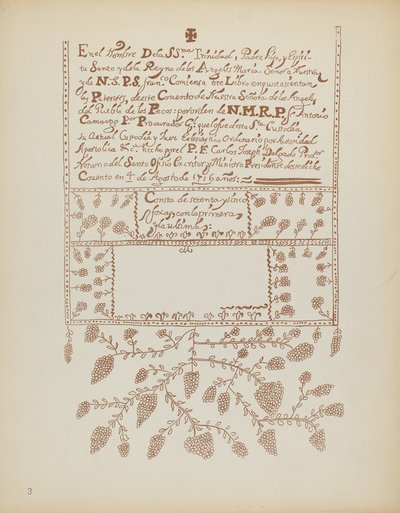 En el Nombre De la SSma Trinidad, Padre Hijo, y Espiri-
tu Santo y de la Reyna de los Angeles Maria Señora Nuestra
y de N.S.P.S. Franco Comiensa este Libro en que se asientan
las Patentes, de este Convento de Nuestra Señora de los Angeles
del Pueblo de los Pecos: por orden de N.M.R.P. Fr Antonio
Camargo Por Procurador Gl que fue desta Sta Custodia
su Actual Custodio y Juez Eclesiastico Ordinario por Autoridad
Apostolica &c. Hecho por el P.F. Carlos Joseph Delgado Pror
Notario del Santo Ofisio Escritor y Ministro Presidente desde dicho
Convento en 4 de Agosto de 1716 años:
Consta de setenta y sinco
foxas, con la primera
y la ultima:
3